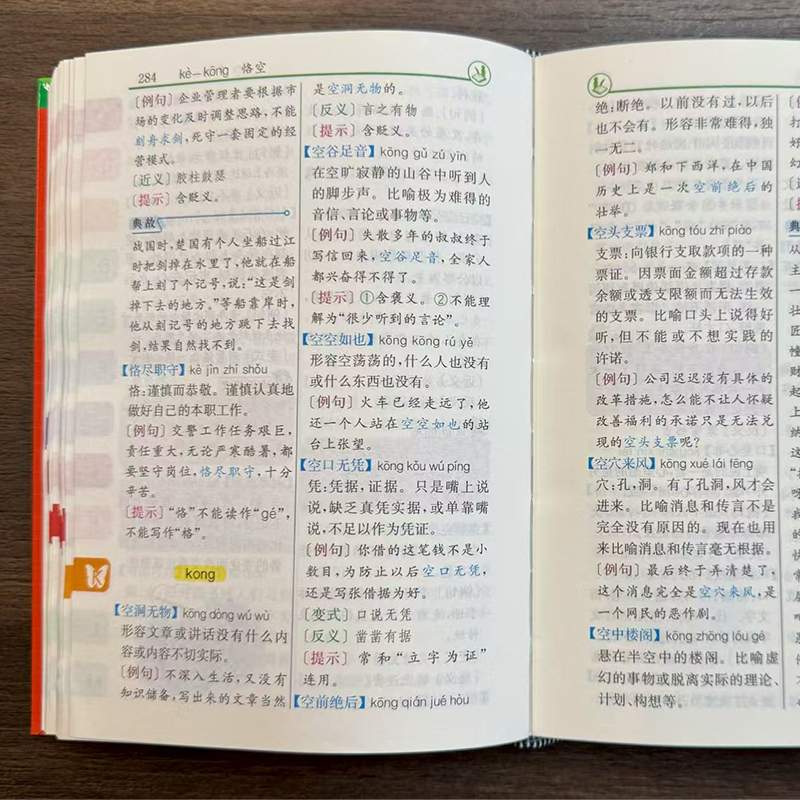 284 kè—kōng 恪空
〔例句〕企业管理者要根据市
场的变化及时调整思路，不能
刻舟求剑，死守一套固定的经
营模式。
〔近义〕胶柱鼓瑟
〔提示〕含贬义。
典故
战国时，楚国有个人坐船过江
时把剑掉在水里了，他就在船
帮上刻了个记号，说：“这是剑
掉下去的地方。”等船靠岸时，
他从刻记号的地方跳下去找
剑，结果自然找不到。
【恪尽职守】kè jìn zhí shǒu
恪：谨慎而恭敬。谨慎认真地
做好自己的本职工作。
〔例句〕交警工作任务艰巨，
责任重大，无论严寒酷暑，都
要坚守岗位，恪尽职守，十分
辛苦。
〔提示〕“恪”不能读作“gé”，
不能写作“格”。
K
kong
【空洞无物】kōng dòng wú wù
形容文章或讲话没有什么内
容或内容不切实际。
〔例句〕不深入生活，又没有
知识储备，写出来的文章当然
是空洞无物的。
〔反义〕言之有物
〔提示〕含贬义。
【空谷足音】kōng gǔ zú yīn
在空旷寂静的山谷中听到人
的脚步声。比喻极为难得的
音信、言论或事物等。
〔例句〕失散多年的叔叔终于
写信回来，空谷足音，全家人
都兴奋得不得了。
〔提示〕①含褒义。②不能理
解为“很少听到的言论”。
【空空如也】kōng kōng rú yě
形容空荡荡的，什么人也没有
或什么东西也没有。
〔例句〕火车已经走远了，他
还一个人站在空空如也的站
台上张望。
【空口无凭】kōng kǒu wú píng
凭：凭据，证据。只是嘴上说
说，缺乏真凭实据，或单靠嘴
说，不足以作为凭证。
〔例句〕你借的这笔钱不是小
数目，为防止以后空口无凭，
还是写张借据为好。
〔变式〕口说无凭
〔反义〕凿凿有据
〔提示〕常和“立字为证”
连用。
【空前绝后】kōng qián jué hòu
绝：断绝。以前没有过，以后
也不会有。形容非常难得，独
一无二。
〔例句〕郑和下西洋，在中国
历史上是一次空前绝后的
壮举。
【空头支票】kōng tóu zhī piào
支票：向银行支取款项的一种
票证。因票面金额超过存款
余额或透支限额而无法生效
的支票。比喻口头上说得好
听，但不能或不想实践的
许诺。
〔例句〕公司迟迟没有具体的
改革措施，怎么能不让人怀疑
改善福利的承诺只是无法兑
现的空头支票呢？
【空穴来风】kōng xué lái fēng
穴：孔，洞。有了孔洞，风才会
进来。比喻消息和传言不是
完全没有原因的。现在也用
来比喻消息和传言毫无根据。
〔例句〕最后终于弄清楚了，
这个消息完全是空穴来风，是
一个网民的恶作剧。
【空中楼阁】kōng zhōng lóu gé
悬在半空中的楼阁。比喻虚
幻的事物或脱离实际的理论、
计划、构想等。